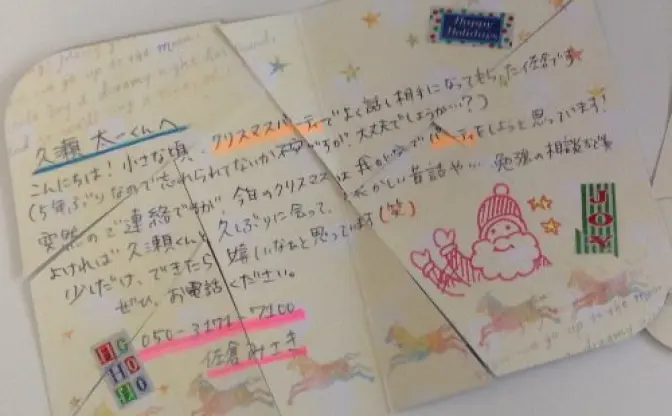 Happy
Holidays
久瀬 太一くんへ
こんにちは！小さな頃、クリスマスパーティでよく話し相手になってもらった佐倉です
(5年ぶりなので忘れられてないか不安ですが、大丈夫でしょうか…？)
突然のご連絡ですが、今年のクリスマスは 我が家で パーティをしようと思っています！
よければ久瀬くんと 久しぶりに会って、懐かしい昔話や… 勉強の相談など
少しだけ、できたら 嬉しいなぁと思っています(笑)
ぜひ、お電話ください。
050-3171-7100
佐倉みさき
JOY
HO